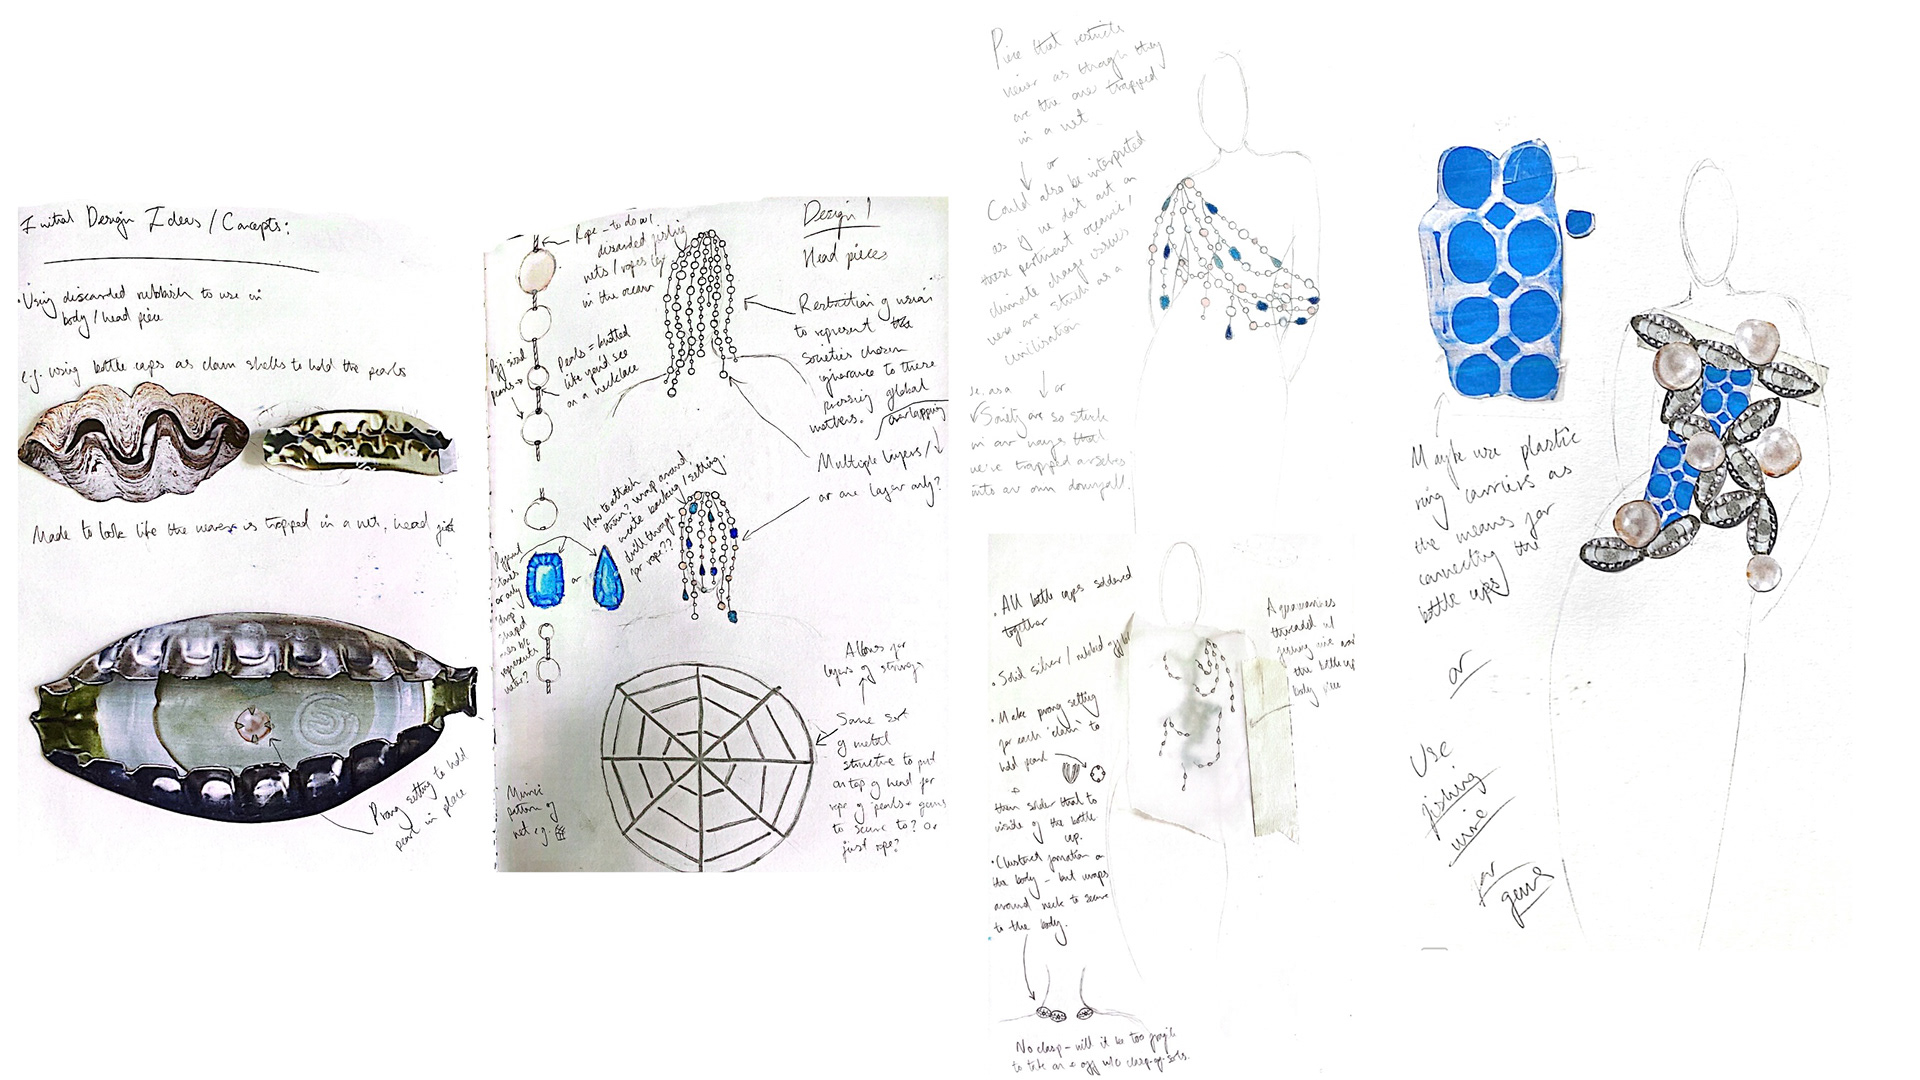 Initial Design Ideas / Concepts:
• Using discarded rubbish to use in
body / head piece
e.g. using bottle caps as clam shells to hold the pearls
Made to look like the wearer is trapped in a net, head
Prong setting to hold
pearl in place
Design 1
Head pieces
Rope - to do w/
discarded fishing
nets / ropes
in the ocean
Pearls = knotted
like you'd see
on a necklace
pearls →
Restriction of vision
to represent
societies chosen
ignorance to these
pressing global
matters.
overlapping
Multiple layers /
or one layer only?
How to attach
them? wrap around,
create backing / setting.
drill through
for rope??
or
or only
'drop'
shaped
ones b/c
represents
water?
Allows for
layers of strings
Same sort
of metal
structure to put
on top of head for
rope of pearls + gems
to secure to? Or
just rope?
Mimic
pattern of
net e.g.
Piece that restricts
as though they
are the one trapped
in a net
or
Could also be interpreted
as if we don't act on
these pertinent oceanic /
climate change issues
were are stuck as a
civilisation
or
Society are so stuck
in our ways that
we've trapped ourselves
into our own downfall.
• All bottle caps soldered
together
• Solid silver / rubbed
• Make prong setting
for each 'clam' to
hold pearl
+
then solder that to
inside of the bottle
cap.
• Clustered formation on
the body - but wraps
around neck to secure
to the body.
Aquamarines
threaded w/
wire and
the bottle cap
body piece
No clasp - will it be too fragile
to take on + off w/o clasp-of-sorts.
Maybe use plastic
ring carriers as
the means for
connecting the
bottle caps
or
Use
fishing
wire
for
gems